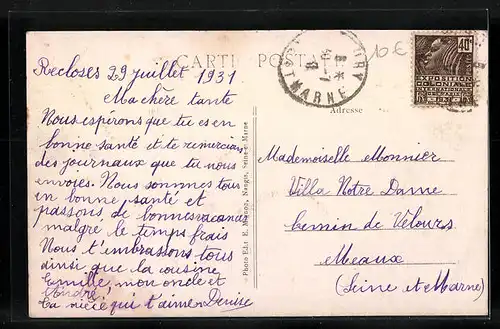 CARTE POSTALE
10 €
40c
EXPOSITION
COLONIALE
Adresse
Recloses 29 juillet 1931
Ma chère tante
Nous espérons que tu es en
bonne santé et te remercions
des journaux que tu nous
envoies. Nous sommes tous
en bonne santé et
passons de bonnes vacances
malgré le temps frais
Nous t'embrassons tous
ainsi que la cousine
Camille, mon oncle et
André.
Ta nièce qui t'aime Denise
Photo-Edit E. Mignon, Nangis, Seine-et-Marne
Mademoiselle Monnier
Villa Notre Dame
Chemin de Vélours
Meaux
(Seine et Marne)
Nº MARNE